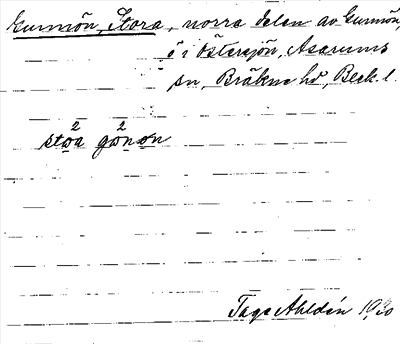 Gunnön, Stora, norra delen av Gunnön,
ö i Östersjön, Asarums
sn, Bräkne hd, Blek. l.
2 2
stωa gωnøn
Tage Ahldén 1930